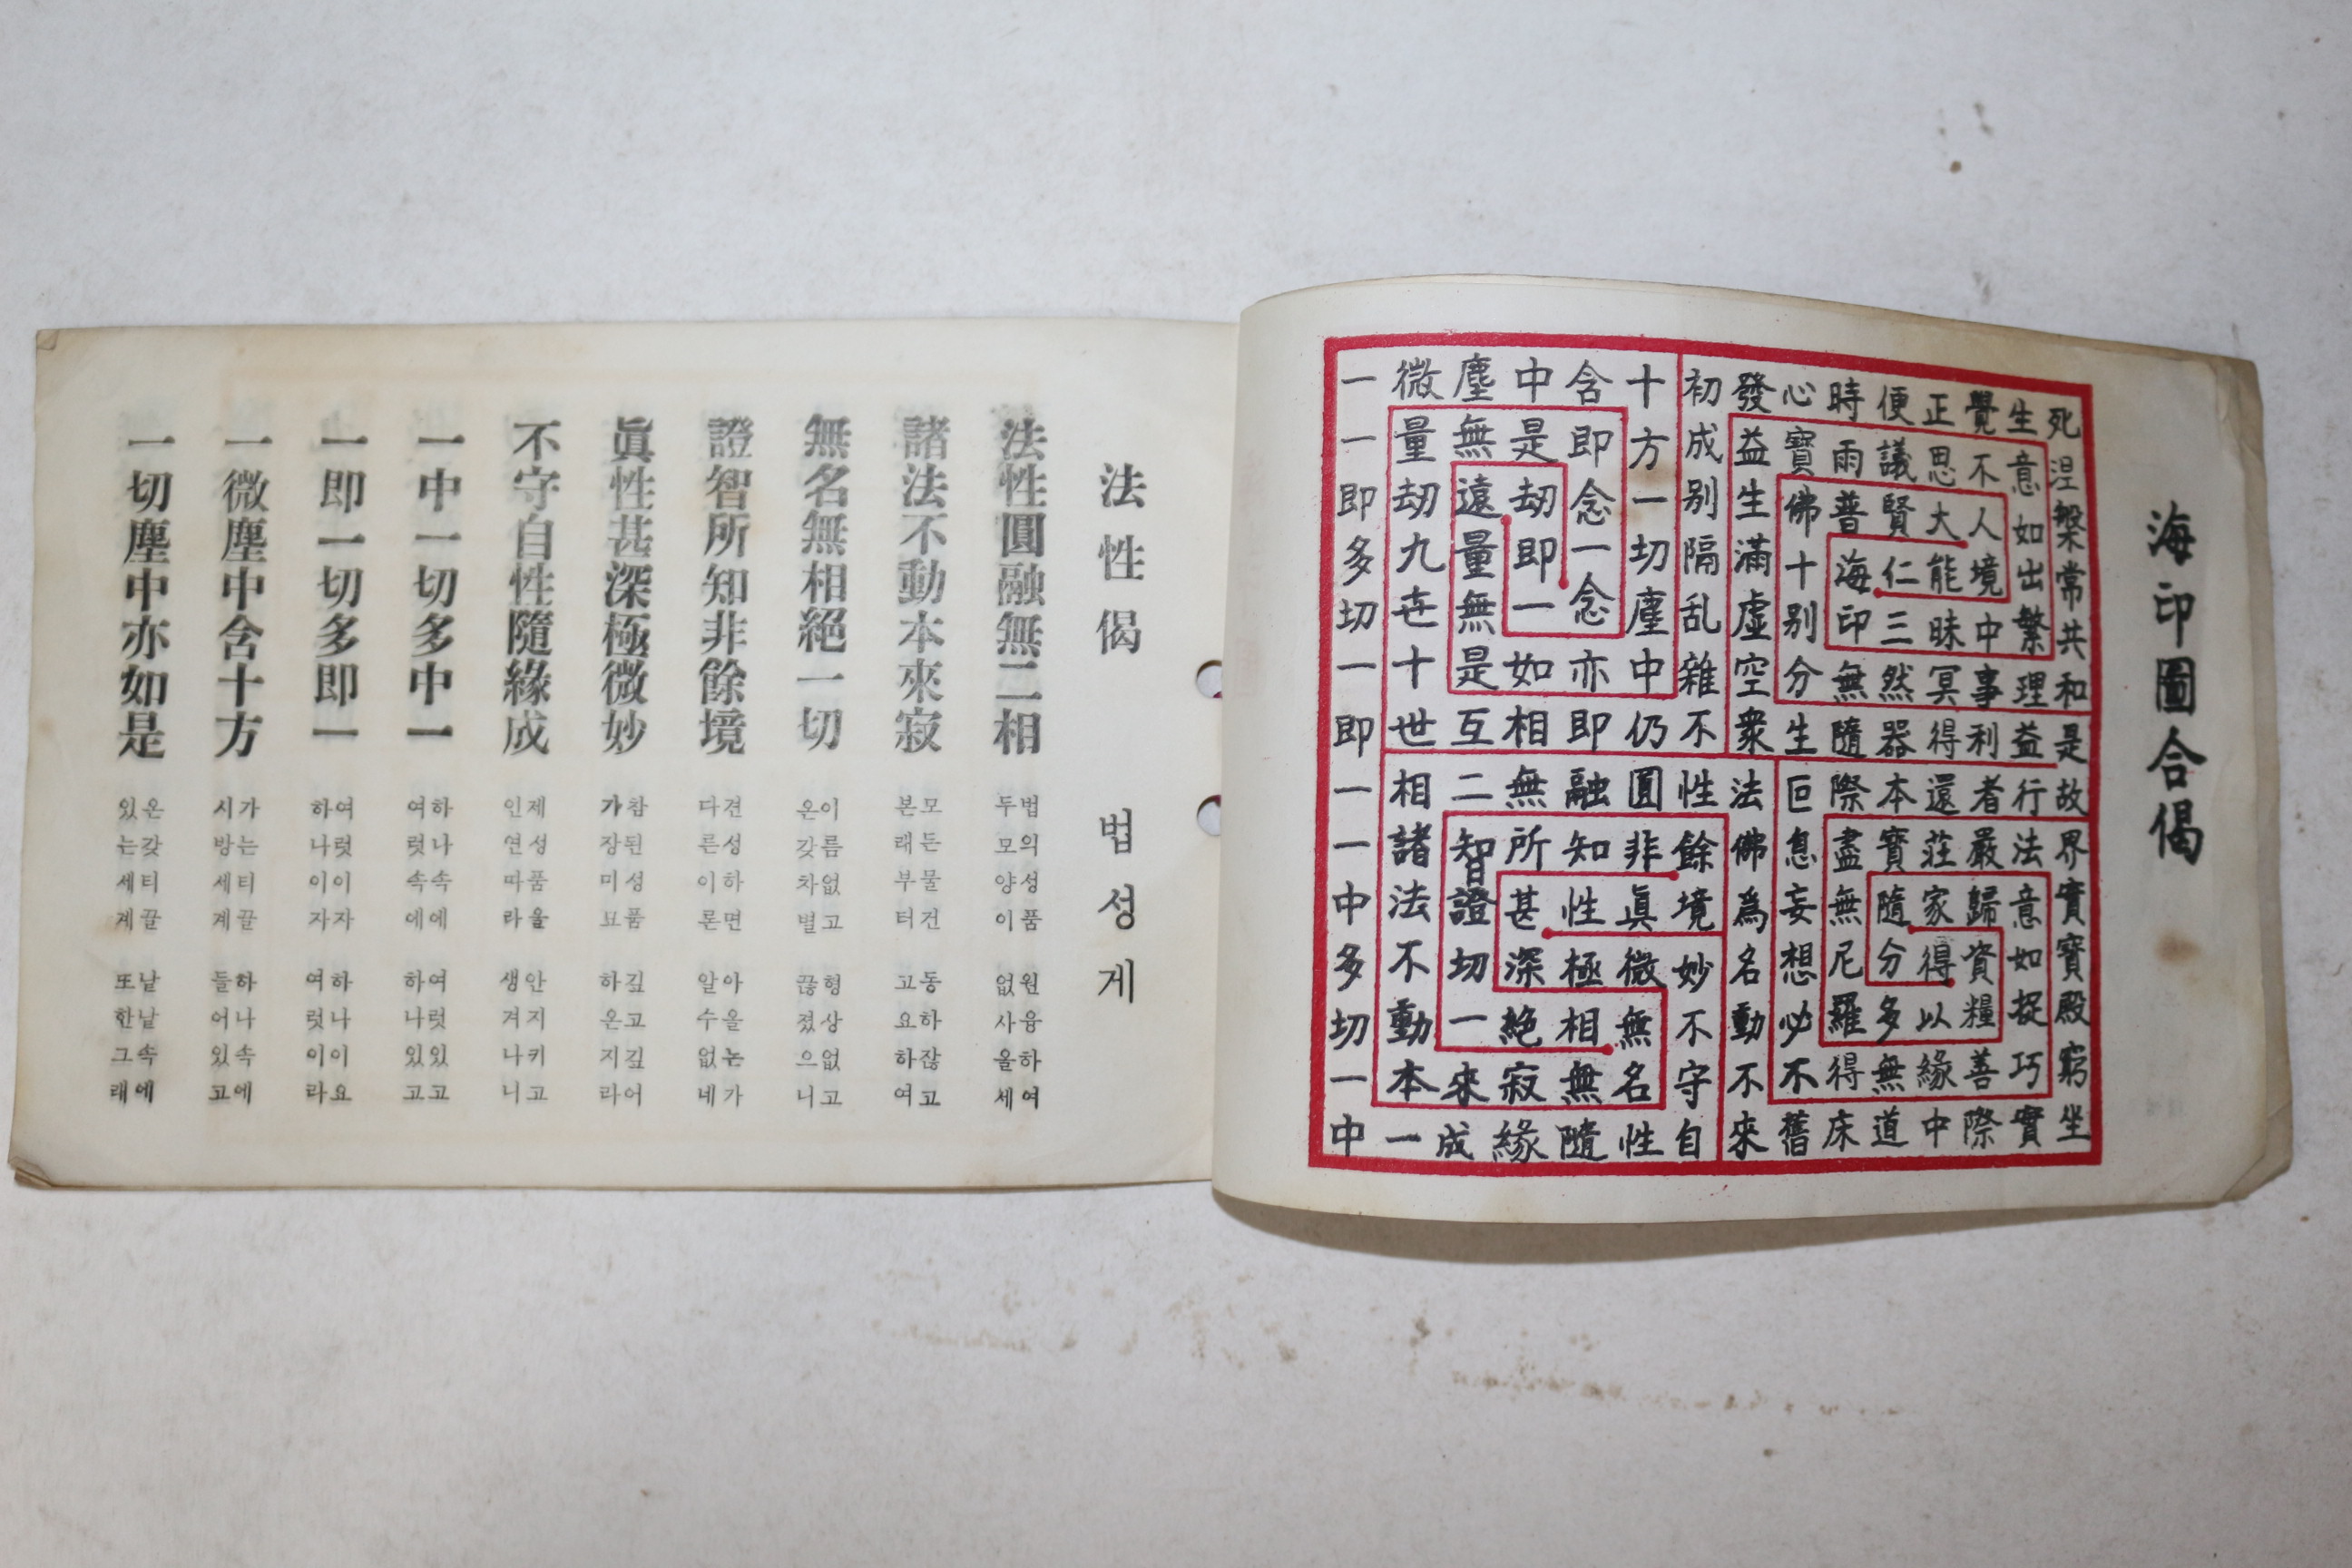 海印圖合偈
一微塵中含十初發心時便正覺生死
一量無是即方成益寶雨議思不意涅
即劫遠劫念一别生佛普賢大人如槃
多九量即一切隔滿十海仁能境出常
切世無一念塵乱虛别印三昧中繁共
一十是如亦中雜空分無然冥事理和
即世互相即仍不衆生隨器得利益是
一相二無融圓性法叵際本還者行故
一諸智所知非餘佛息盡寶莊嚴法界
中法證甚性眞境為妄無隨家歸意實
多不切深極微妙名想尼分得資如寶
切動一絕相無不動必羅多以糧捉殿
一本來寂無名守不不得無緣善巧窮
中一成緣隨性自來舊床道中際實坐
法性偈 법성게
法性圓融無二相
법의성품 원융하여
두모양이 없사올세
諸法不動本來寂
모든물건 동하잖고
본래부터 고요하여
無名無相絕一切
이름없고 형상없고
온갖차별 끊졌으니
證智所知非餘境
견성하면 아올논가
다른이론 알수없네
眞性甚深極微妙
참된성품 깊고깊어
가장미묘 하온지라
不守自性隨緣成
제성품을 안지키고
인연따라 생겨나니
一中一切多中一
하나속에 여럿있고
여럿속에 하나있고
一即一切多即一
여럿이자 하나이요
하나이자 여럿이라
一微塵中含十方
가는티끌 하나속에
시방세계 들어있고
一切塵中亦如是
온갖티끌 낱낱속에
있는세계 또한그래